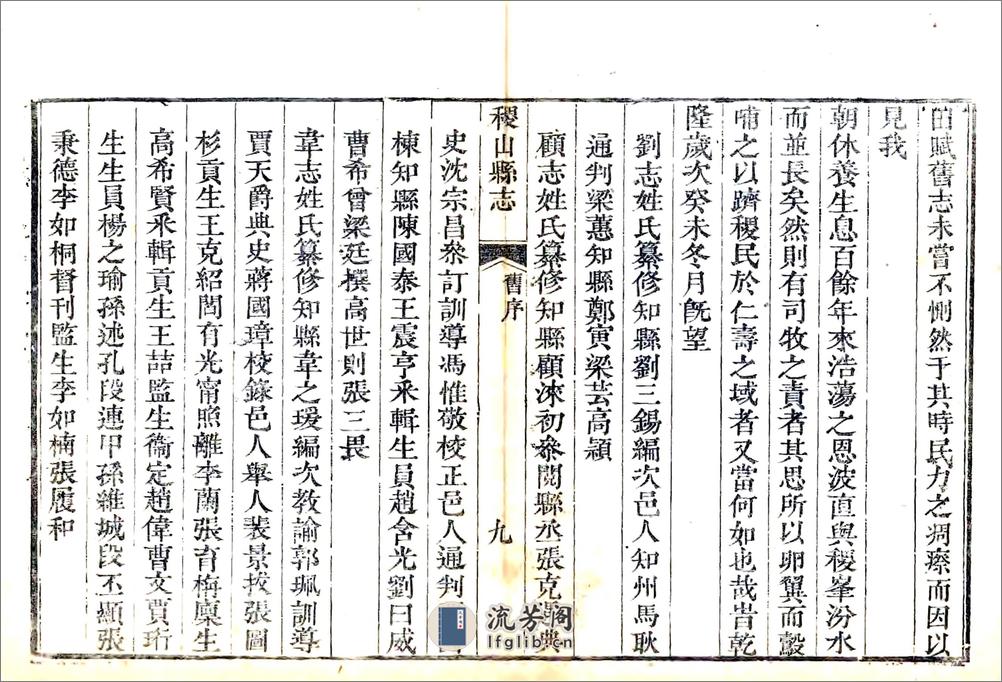 田賦舊志未嘗不惻然于其時民力之凋瘵而因以
見我
朝休養生息百餘年來浩蕩之恩波直與稷峯汾水
而並長矣然則有司牧之責者其思所以卵翼而鷇
哺之以躋稷民於仁壽之域者又當何如也哉旹乾
隆歲次癸未冬月旣望
劉志姓氏纂修知縣劉三錫編次邑人知州馬耿
通判梁蕙知縣鄭寅梁芸高頴
顧志姓氏纂修知縣顧涞初叅閱縣丞張克典
稷山縣志
舊序
九
史沈宗昌叅訂訓導馮惟敬校正邑人通判
棟知縣陳國泰王震亨釆輯生員趙含光劉曰威
曹希曾梁廷撰高世則張三畏
韋志姓氏纂修知縣韋之瑗編次教諭郭珮訓導
賈天爵典史蔣國璋校錄邑人舉人裴景拔張圖
杉貢生王克紹閻有光甯照離李蘭張育梅廩生
高希賢釆輯貢生王喆監生衞定趙偉曹文賈珩
生生員楊之瑜孫述孔段連甲孫維城段丕顯張
秉德李如桐督刊監生李如楠張履和
流芳閣
lfglib.cn